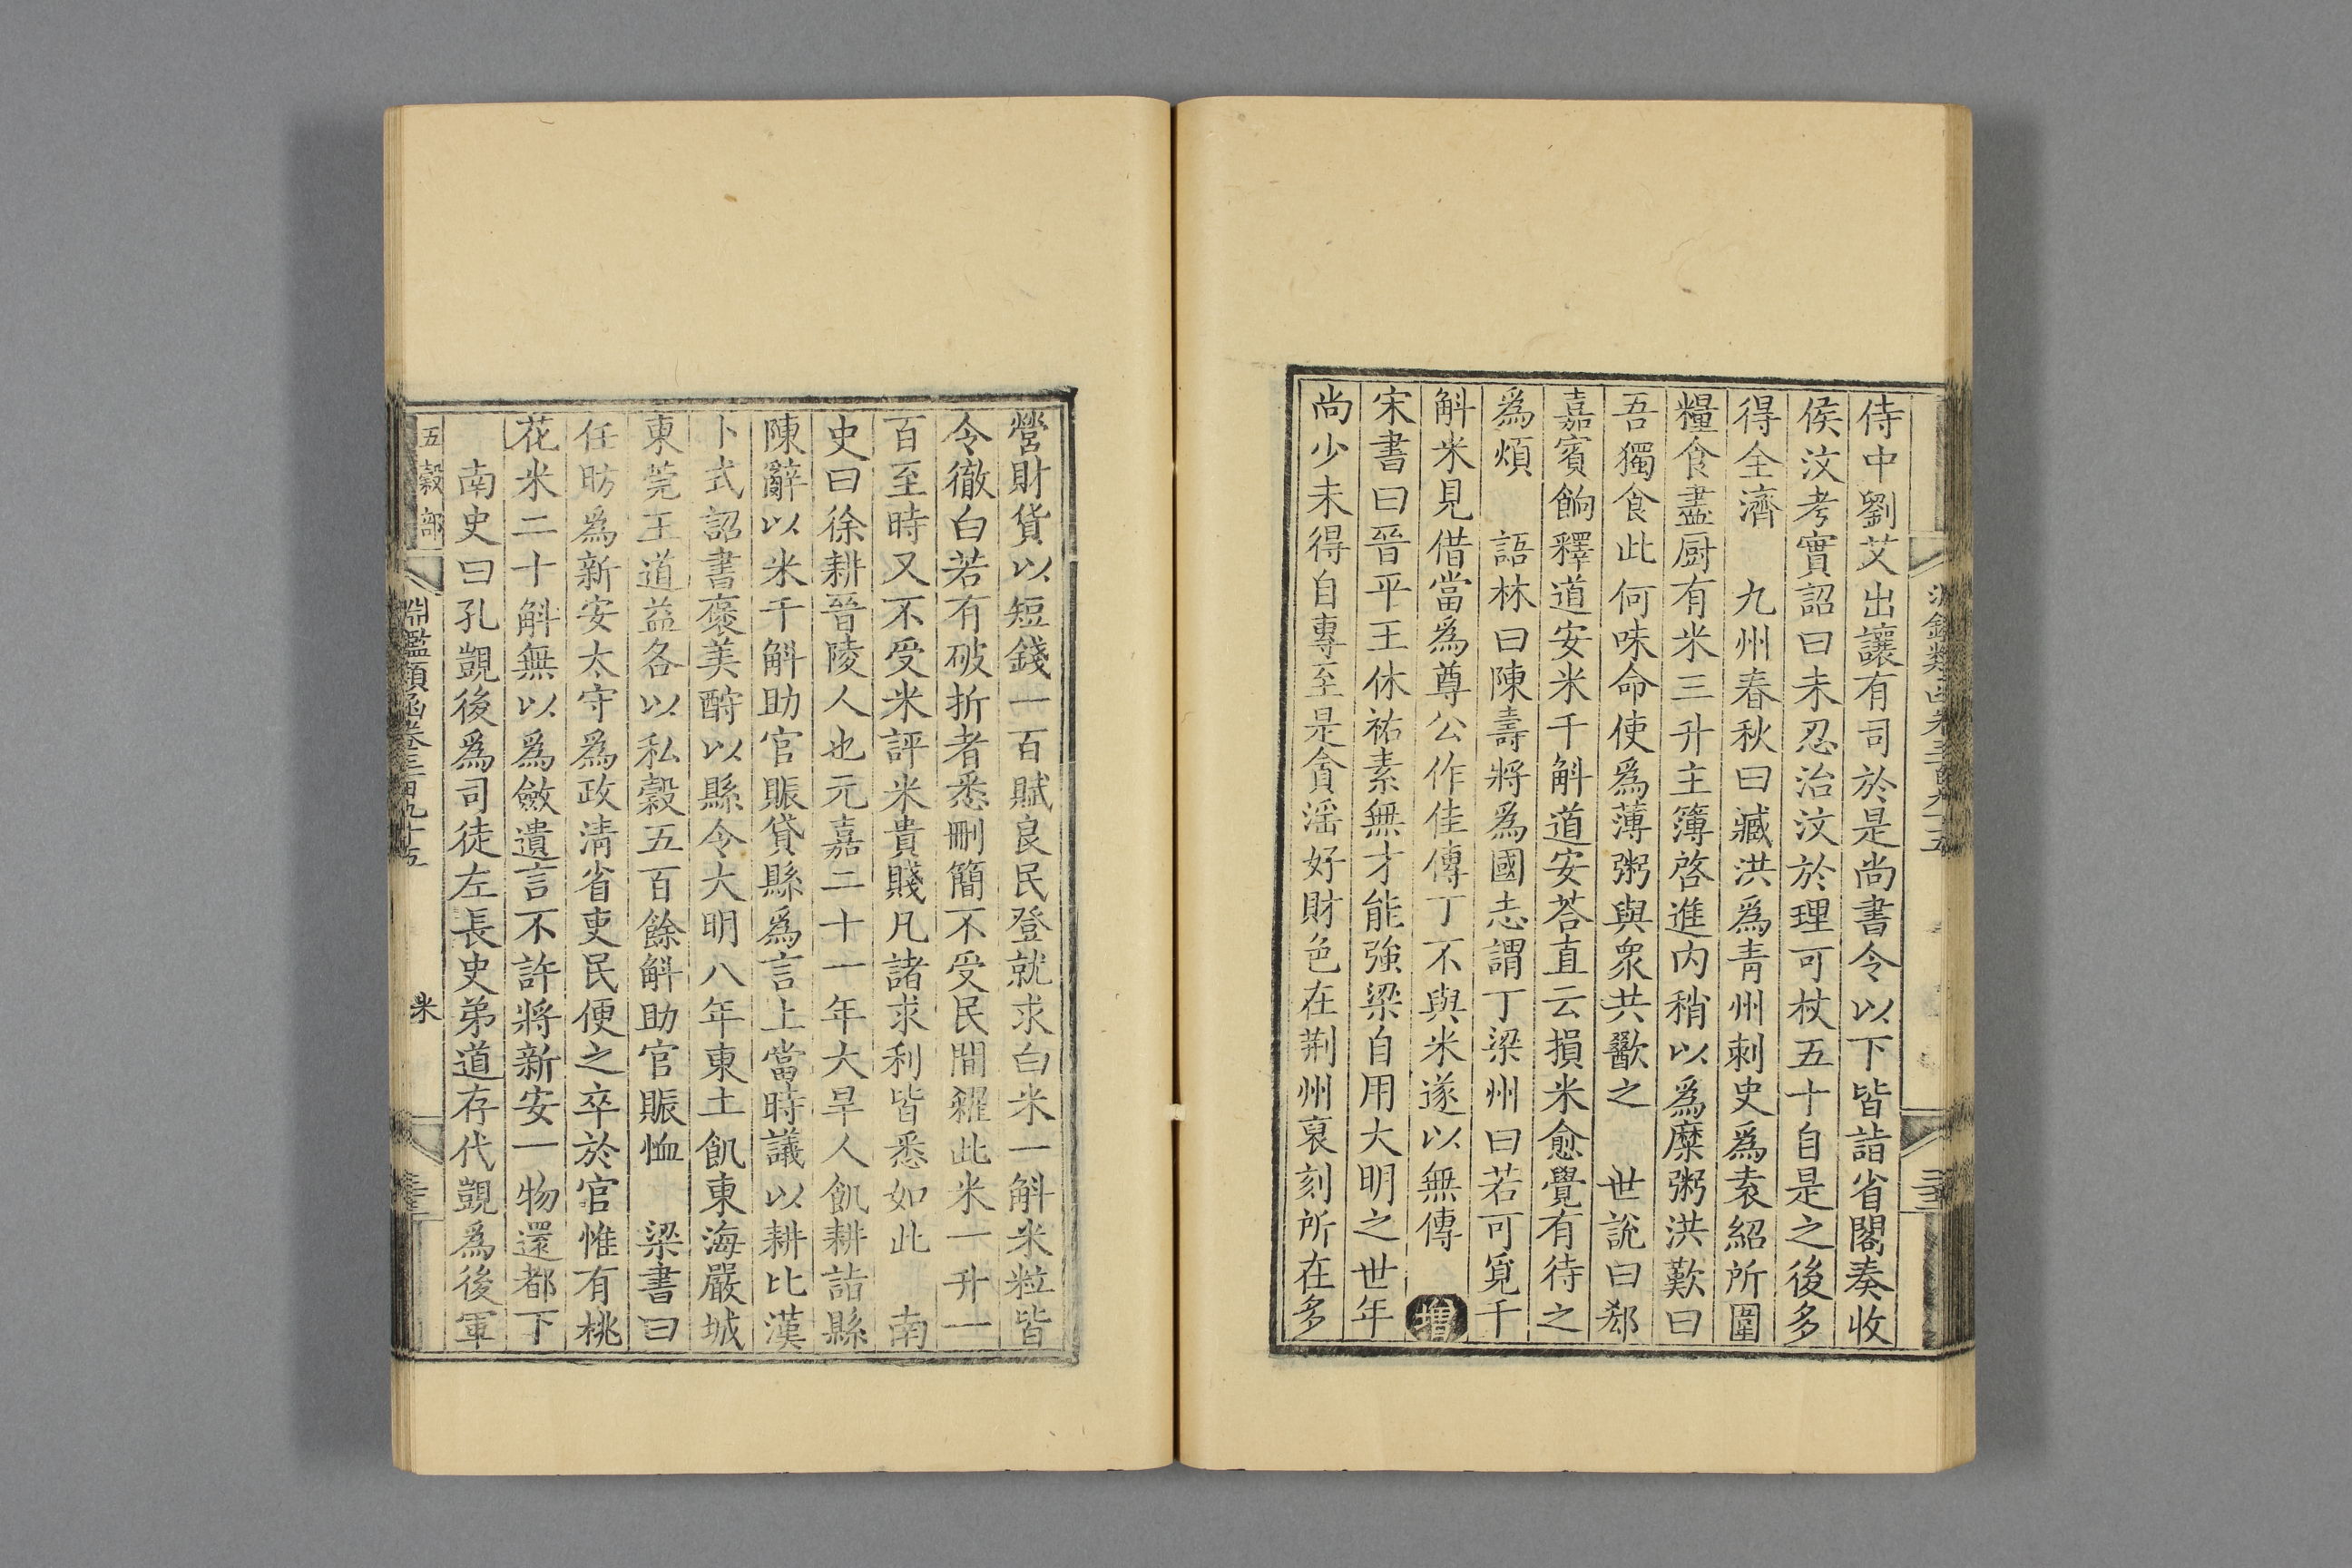 侍中劉艾出讓有司於是尚書令以下皆詣省閣奏收
侯汶考實詔曰未忍治汶於理可杖五十自是之後多
得全濟　九州春秋曰臧洪為青州刺史爲袁紹所圍
糧食盡厨有米三升主簿啓進內稍以爲糜粥洪歎曰
吾獨食此何味命使爲薄粥與衆共歠之　世說曰郄
嘉賓餉釋道安米千斛道安荅直云損米愈覺有待之
爲煩　語林曰陳壽將爲國志謂丁梁州曰若可覓千
斛米見借當爲尊公作佳傳丁不與米遂以無傳　增
宋書曰晉平王休祐素無才能強梁自用大明之世年
尚少未得自專至是貪滛好財色在荆州裒刻所在多
營財貨以短錢一百賦良民登就求白米一斛米粒皆
令徹白若有破折者悉刪簡不受民間糴此米一升一
百至時又不受米評米貴賤凡諸求利皆悉如此　南
史曰徐耕晉陵人也元嘉二十一年大旱人飢耕詣縣
陳辭以米千斛助官賑貸縣爲言上當時議以耕比漢
卜式詔書褒美酧以縣令大明八年東土飢東海嚴城
東莞王道益各以私穀五百餘斛助官賑恤　梁書曰
任昉爲新安太守爲政淸省吏民便之卒於官惟有桃
花米二十斛無以爲斂遺言不許將新安一物還都下
南史曰孔覬後爲司徒左長史弟道存代覬爲後軍
五穀部　淵鑑類函卷三百九十五　米